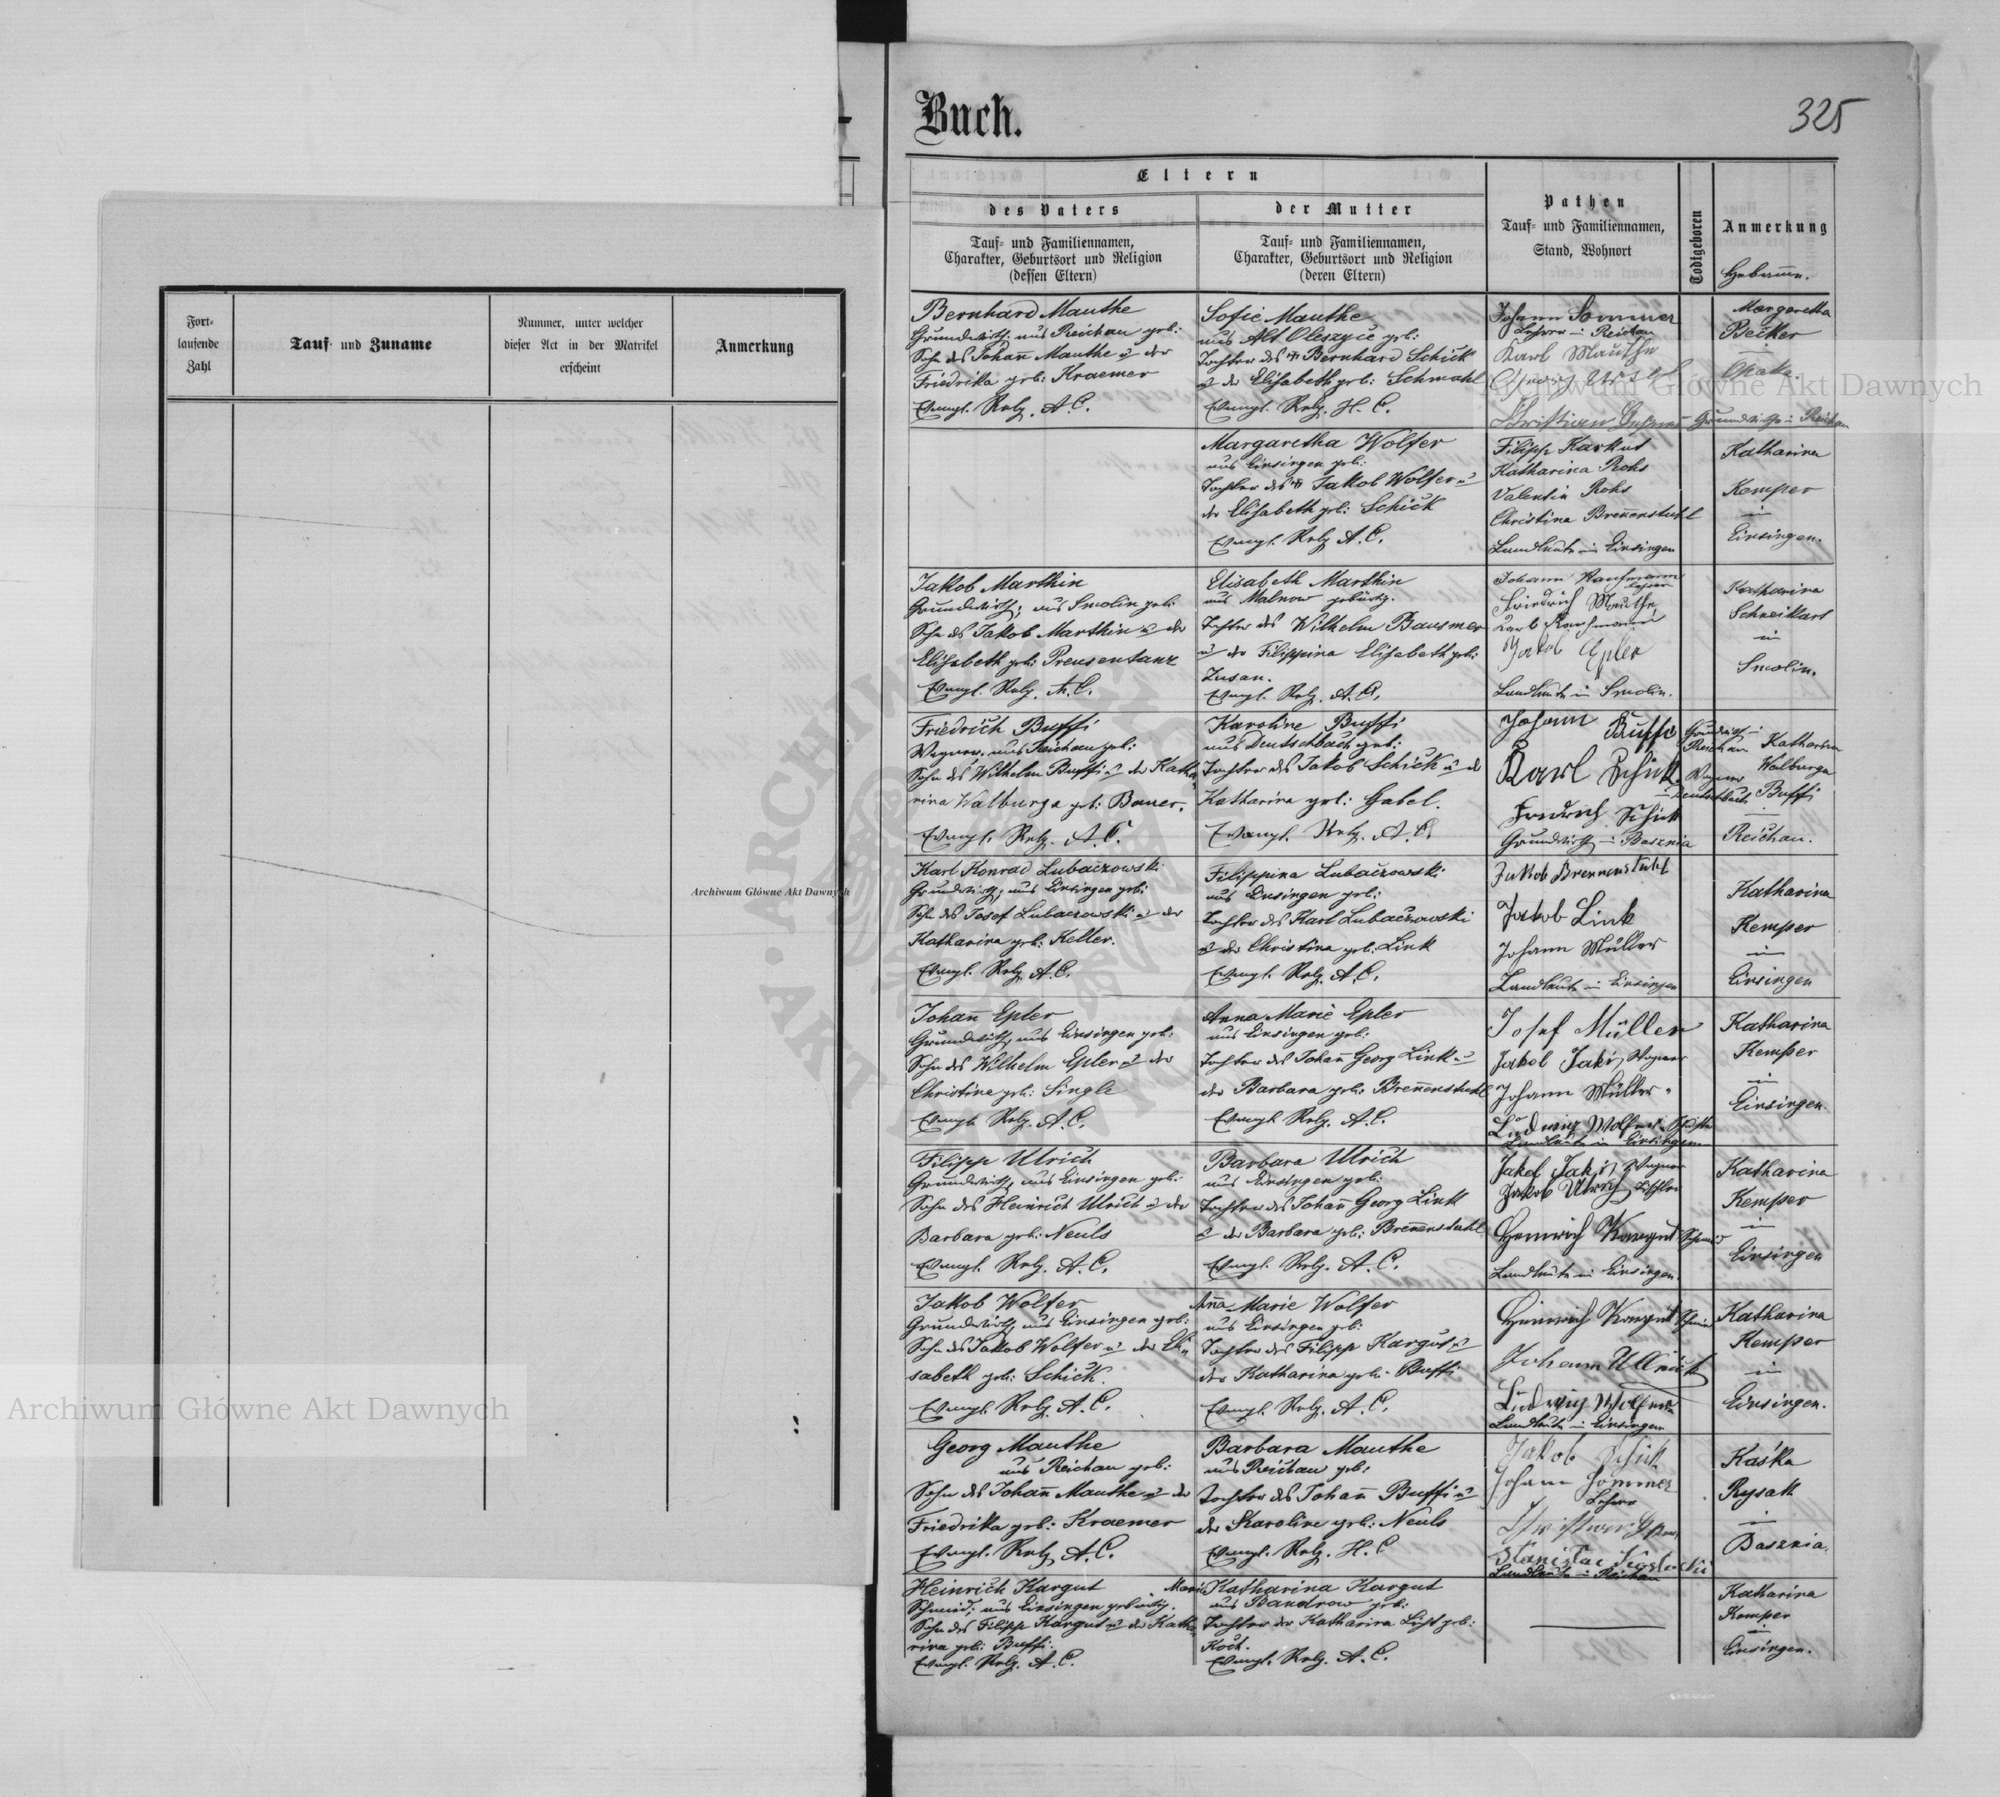 Buch.
325
Eltern
des Vaters
Tauf- und Familiennamen,
Charakter, Geburtsort und Religion
(dessen Eltern)
der Mutter
Tauf- und Familiennamen,
Charakter, Geburtsort und Religion
(deren Eltern)
Pathen
Tauf- und Familiennamen,
Stand, Wohnort
Todtgeboren
Anmerkung
Hebamme.
Fort-
laufende
Zahl
Tauf- und Zuname
Nummer, unter welcher
dieser Act in der Matrikel
erscheint
Anmerkung
Bernhard Mauthe
Grundwirth, aus Reichau geb:
Sohn des Johann Mauthe u der
Friedrika geb: Kraemer
Evangl. Relg. A. C.
Sofie Mauthe
aus Alt Oleszyce geb:
Tochter des Bernhard Schick
u der Elisabeth geb: Schmahl
Evangl. Relg. H. C.
Johann Sommer
Lehrer in Reichau
Karl Mauthe
Christian
Grundwirthe in Reichau
Margaretha
Becker
in
Opaka.
Margaretha Wolfer
aus Einsingen geb:
Tochter des Jakob Wolfer u
der Elisabeth geb: Schick
Evangl. Relg A. C.
Filipp Karkut
Katharina Rohs
Valentin Rohs
Christina Brennenstuhl
Landleute in Einsingen
Katharina
Kemper
in
Einsingen.
Jakob Marthin
Grundwirth, aus Smolin geb:
Sohn des Jakob Marthin u der
Elisabeth geb: Preusentanz
Evangl. Relg. A. C.
Elisabeth Marthin
aus Malnow gebürtig.
Tochter des Wilhelm Bausmer
u der Filippina Elisabeth geb:
Zusan.
Evangl. Relg. A. C.
Johann Kaufmann
Friedrich Mauthe
Karl Kaufmann
Jakob Epler
Landleute in Smolin.
Katharina
Schneikart
in
Smolin.
Friedrich Buffi
Wagner, aus Reichau geb:
Sohn des Wilhelm Buffi u der Katha
rina Walburga geb: Bauer.
Evangl. Relg. A. C.
Karoline Buffi
aus Deutschbach geb:
Tochter des Jakob Schick u der
Katharina geb: Gabel.
Evangl. Relg. A. C.
Johann Buffi Grundwirth in
Reichau
Karl Schick Wagner
in Deutschbach
Friedrich Schick
Grundwirth in Basznia
Katharina
Walburga
Buffi
Reichau.
Karl Konrad Lubaczowski
Grundwirth, aus Einsingen geb:
Sohn des Josef Lubaczowski u der
Katharina geb: Keller.
Evangl. Relg. A. C.
Filippina Lubaczowski
aus Einsingen geb:
Tochter des Karl Lubaczowski
u der Christina geb: Link
Evangl. Relg. A. C.
Jakob Brennenstuhl
Jakob Link
Johann Müller
Landleute in Einsingen
Katharina
Kemper
in
Einsingen
Johann Epler
Grundwirth, aus Einsingen geb:
Sohn des Wilhelm Epler u der
Christina geb: Single
Evangl. Relg. A. C.
Anna Marie Epler
aus Einsingen geb:
Tochter des Johann Georg Link u
der Barbara geb: Brennenstuhl
Evangl. Relg. A. C.
Josef Müller
Jakob Jaki, Wagner
Johann Müller
Ludwig Wolfer
Landleute in Einsingen
Katharina
Kemper
in
Einsingen.
Filipp Ulrich
Grundwirth, aus Einsingen geb:
Sohn des Heinrich Ulrich u der
Barbara geb: Neuls
Evangl. Relg. A. C.
Barbara Ulrich
aus Einsingen geb:
Tochter des Johann Georg Link
u der Barbara geb: Brennenstuhl
Evangl. Relg. A. C.
Jakob Jaki, Wagner
Jakob Ulrich Tischler
Heinrich Kargut Schmid
Landleute in Einsingen.
Katharina
Kemper
in
Einsingen
Jakob Wolfer
Grundwirth, aus Einsingen geb:
Sohn des Jakob Wolfer u der Eli
sabeth geb: Schick.
Evangl. Relg. A. C.
Anna Marie Wolfer
aus Einsingen geb:
Tochter des Filipp Kargut u
der Katharina geb: Buffi
Evangl. Relg. A. C.
Heinrich Kargut Schmid
Johann Ullrich
Ludwig Wolfer
Landleute in Einsingen
Katharina
Kemper
in
Einsingen.
Georg Mauthe
aus Reichau geb:
Sohn des Johann Mauthe u der
Friedrika geb: Kraemer
Evangl. Relg. A. C.
Barbara Mauthe
aus Reichau geb:
Tochter des Johann Buffi u
der Karoline geb: Neuls
Evangl. Relg. H. C
Jakob Schick
Johann Sommer
Lehrer
Stanislac
Landleute in Reichau
Kaśka
Rysak
in
Basznia.
Heinrich Kargut
Schmied, aus Einsingen gebürtig.
Sohn des Filipp Kargut u der Katha
rina geb: Buffi.
Evangl. Relg. A. C.
Maria Katharina Kargut
aus Bandrow geb:
Tochter der Katharina Licht geb:
Koch.
Evangl. Relg. A. C.
Katharina
Kemper
in
Einsingen.
Archiwum Główne Akt Dawnych
Archiwum Główne Akt Dawnych
Archiwum Główne Akt Dawnych